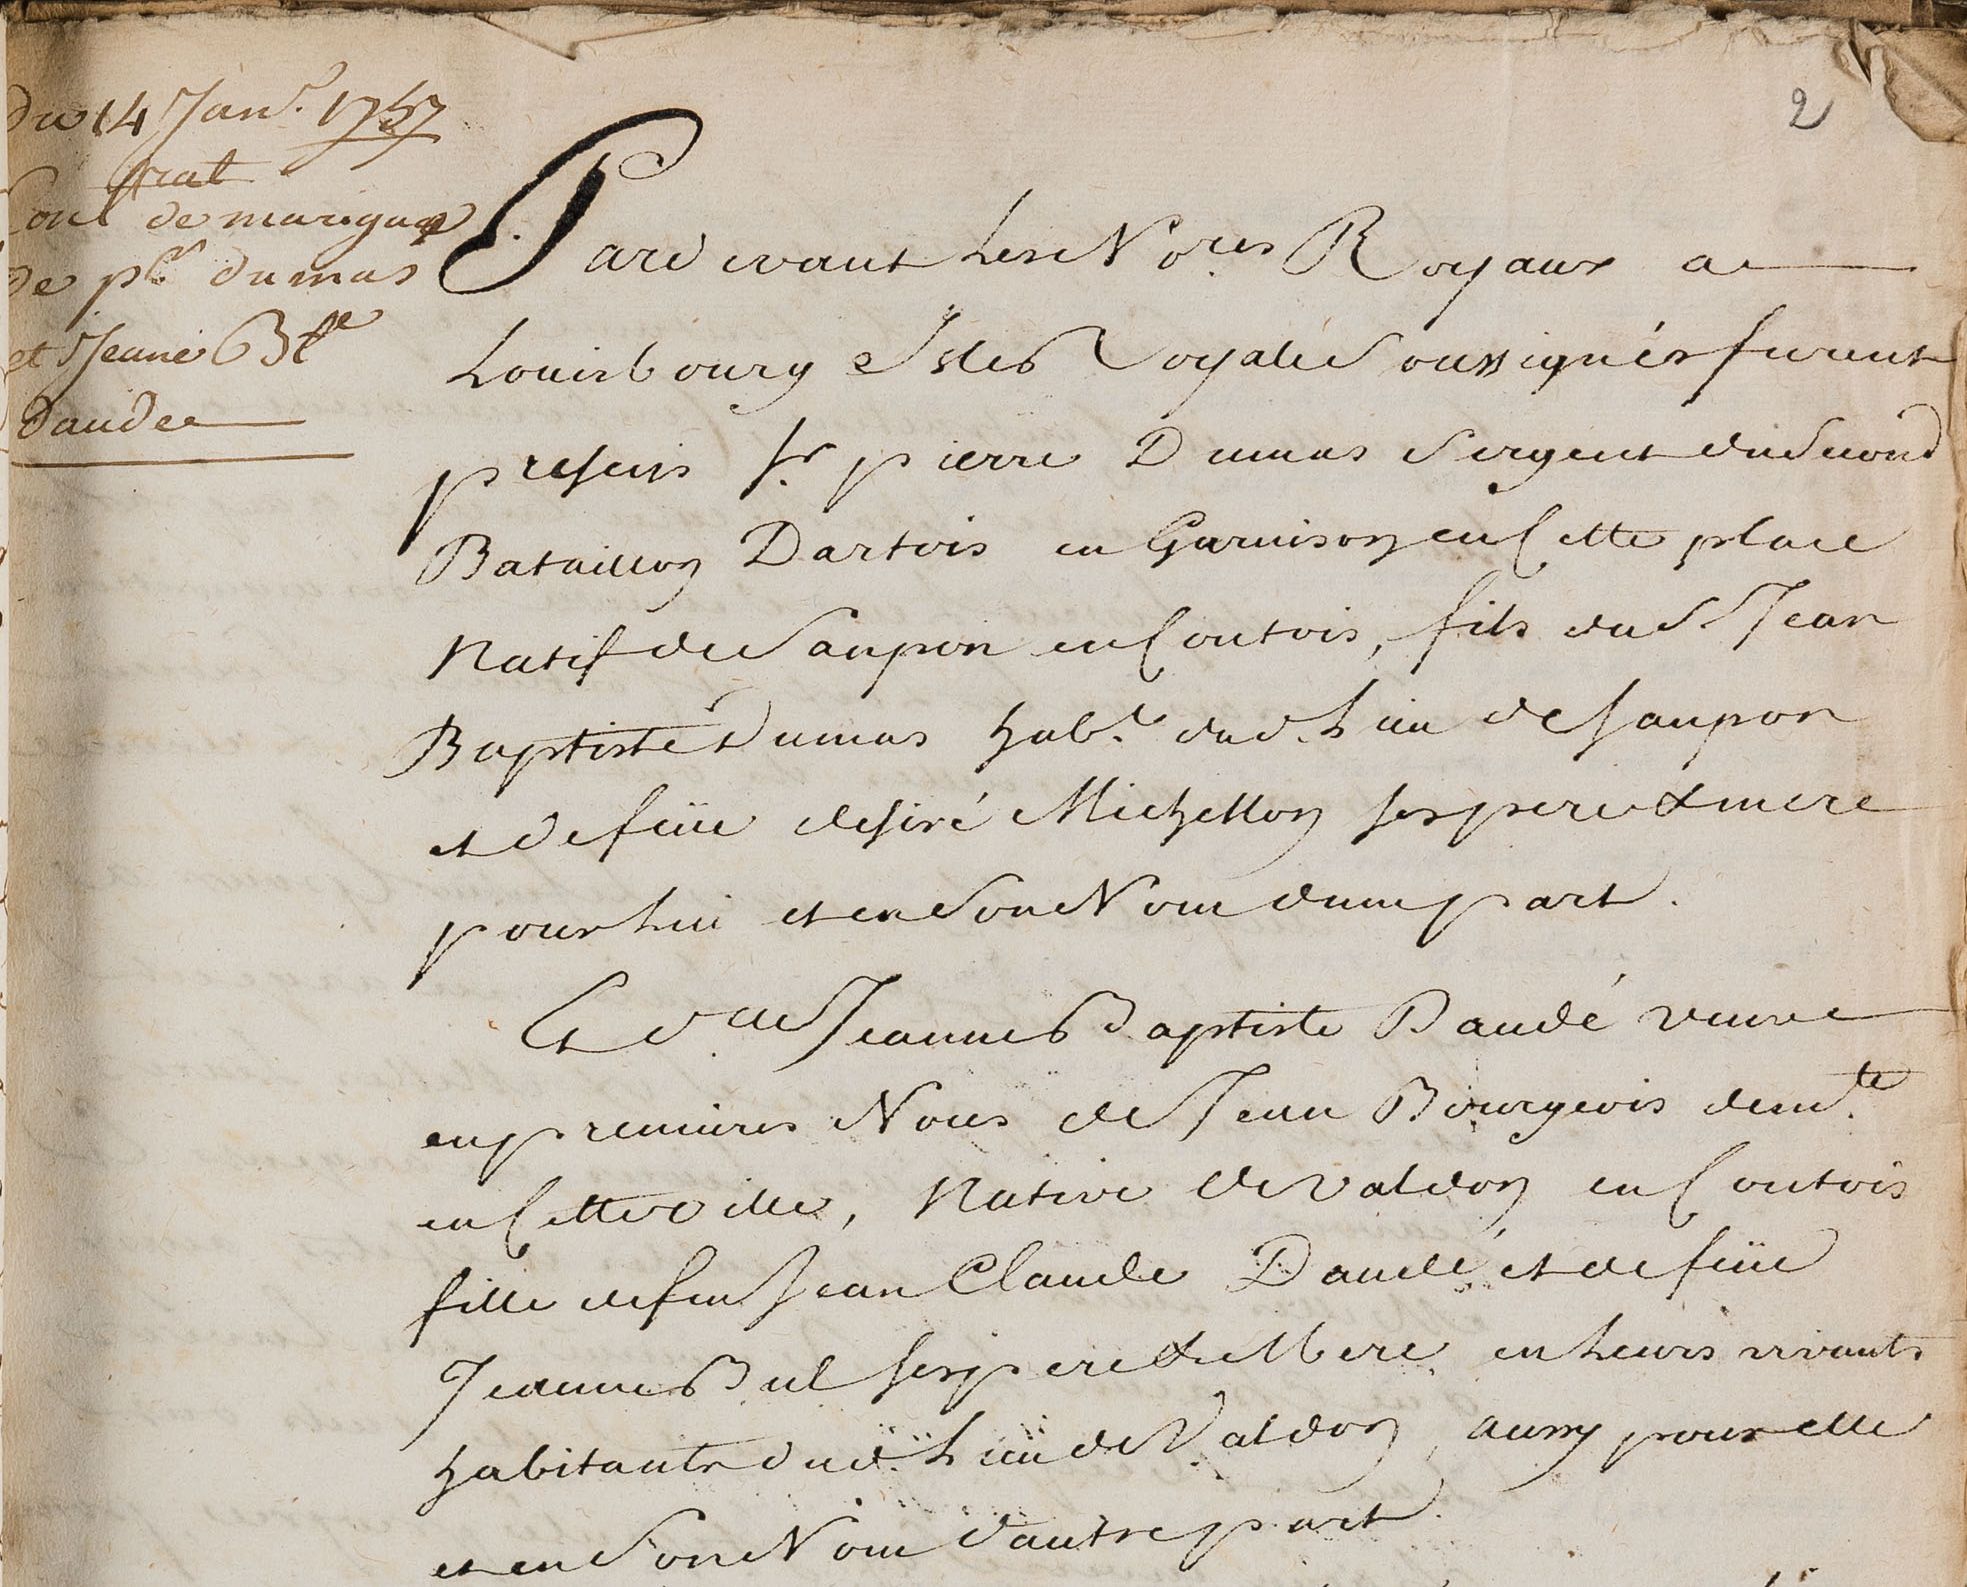 Du 14 Janr. 1757
Contrat de mariyage
de pre dumas
et Jeane Bte
daudee
2
Pardevant Les Nores Royaux a
Louisbourg Isle Royale Soussignés furent
presens Sr. pierre Dumas Sergent du Second
Bataillon Dartois en Garnison en Cette place
Natif de Saupon en Contois, fils du S. Jean
Baptiste Dumas habt. dud. Lieu de Saupon
et de feüe desiré Michellon ses pere & mere
pour lui et en Son Nom d'une part.
Et d. elle Jeanne Baptiste Daudé veuve
en premieres Noces de Jean Bourgeois demte.
en Cette ville, Native de Valdon en Contois
fille de feu Jean Claude Daudé et de feüe
Jeanne Bul ses pere & Mere en Leurs vivants
habitants dud. Lieu de Valdon, aussy pour elle
et en Son Nom d'autre part.